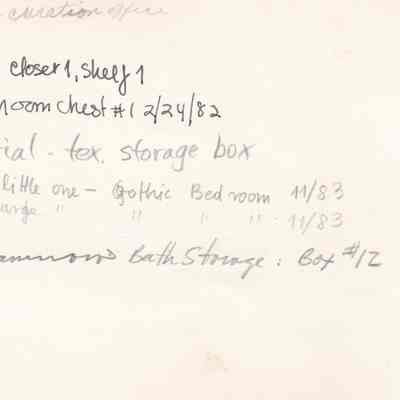 curation office
closer 1, shelf 1
room chest #1 2/24/82
ial - tex. storage box
little one - Gothic Bedroom 11/83
arge " " " " 11/83
Bath Storage : Box #12